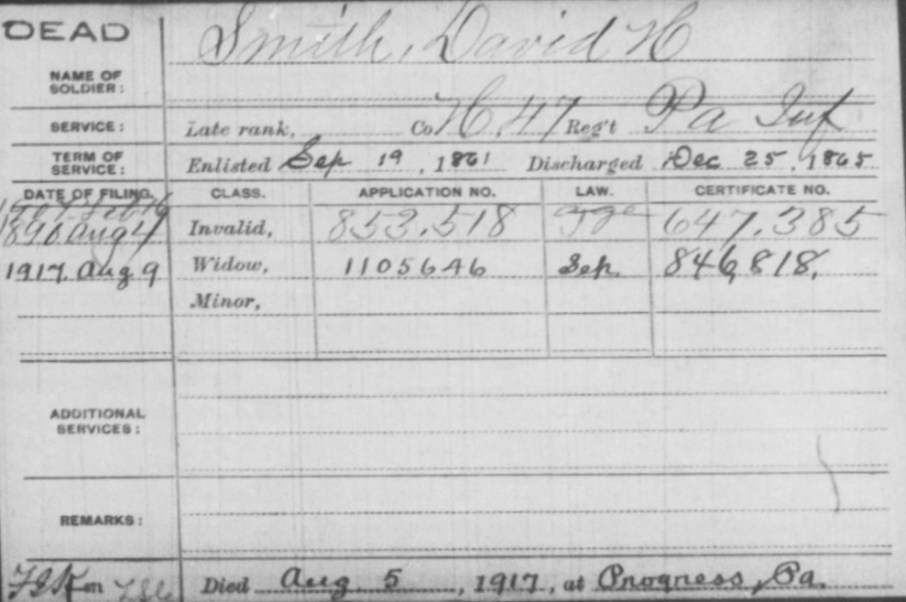 DEAD
Smith, David H
NAME OF
SOLDIER:
SERVICE: Late rank, Co H, 47 Reg't Pa Inf
TERM OF
SERVICE: Enlisted Sep 19, 1861 Discharged Dec 25, 1865
DATE OF FILING. CLASS. APPLICATION NO. LAW. CERTIFICATE NO.
1890 Aug 4 Invalid, 853.518 647.385
1917 Aug 9 Widow, 1105646 Sep. 846,818.
Minor,
ADDITIONAL
SERVICES:
REMARKS:
Died Aug 5, 1917, at Progress, Pa.